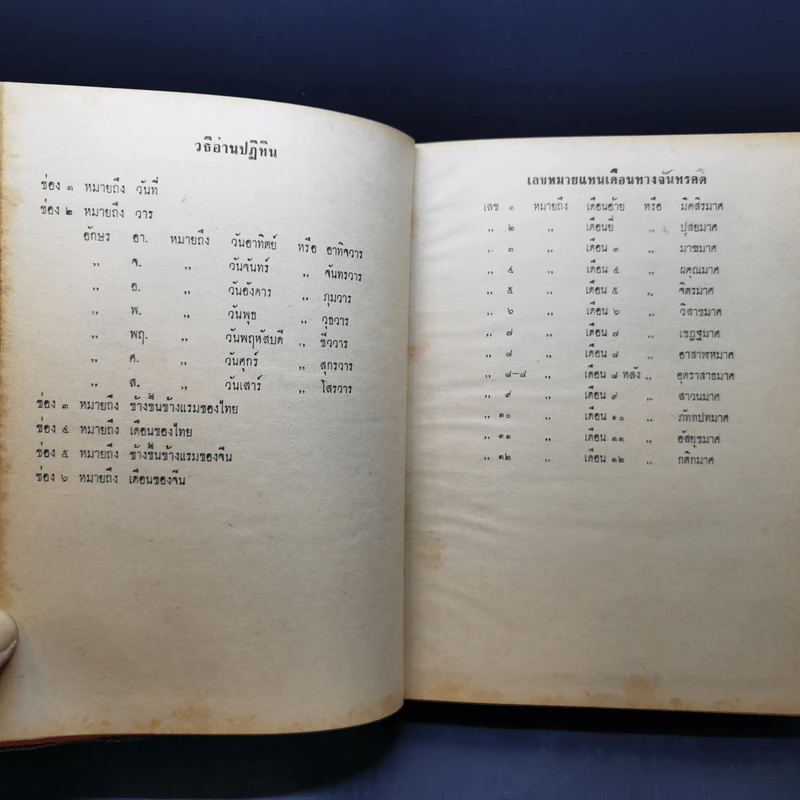 วธีอ่านปฏิทิน
ช่อง ๑ หมายถึง วันที่
ช่อง ๒ หมายถึง วาร
อักษร อา. หมายถึง วันอาทิตย์ หรือ อาทิจวาร
,, จ. ,, วันจันทร์ ,, จันทรวาร
,, อ. ,, วันอังคาร ,, ภุมวาร
,, พ. ,, วันพุธ ,, วุธวาร
,, พฤ. ,, วันพฤหัสบดี ,, ชีววาร
,, ศ. ,, วันศุกร์ ,, สุกรวาร
,, ส. ,, วันเสาร์ ,, โสรวาร
ช่อง ๓ หมายถึง ข้างขึ้นข้างแรมของไทย
ช่อง ๔ หมายถึง เดือนของไทย
ช่อง ๕ หมายถึง ข้างขึ้นข้างแรมของจีน
ช่อง ๖ หมายถึง เดือนของจีน
เลขหมายแทนเดือนทางจันทรคติ
เลข ๑ หมายถึง เดือนอ้าย หรือ มิคสิรมาศ
,, ๒ ,, เดือนยี่ ,, ปุสยมาศ
,, ๓ ,, เดือน ๓ ,, มาฆมาศ
,, ๔ ,, เดือน ๔ ,, ผคุณมาศ
,, ๕ ,, เดือน ๕ ,, จิตรมาศ
,, ๖ ,, เดือน ๖ ,, วิสาขมาศ
,, ๗ ,, เดือน ๗ ,, เชฏฐมาศ
,, ๘ ,, เดือน ๘ ,, อาสาฬหมาศ
,, ๘–๘ ,, เดือน ๘ หลัง ,, อุตราสาธมาศ
,, ๙ ,, เดือน ๙ ,, สาวนมาศ
,, ๑๐ ,, เดือน ๑๐ ,, ภัททปทมาศ
,, ๑๑ ,, เดือน ๑๑ ,, อัสยุชมาศ
,, ๑๒ ,, เดือน ๑๒ ,, กติกมาศ